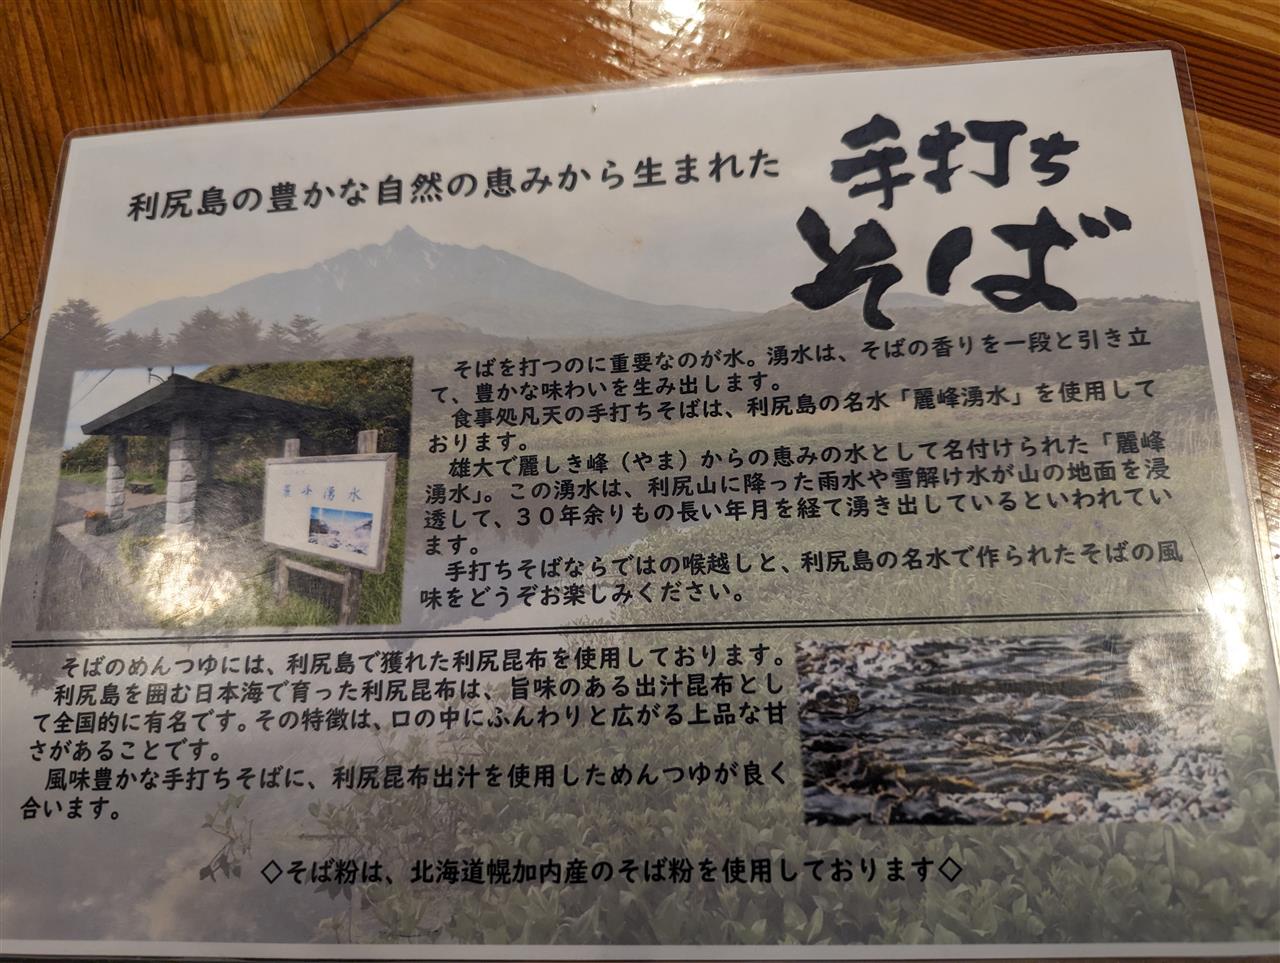 利尻島の豊かな自然の恵みから生まれた
手打ち
そば
そばを打つのに重要なのが水。湧水は、そばの香りを一段と引き立
て、豊かな味わいを生み出します。
食事処凡天の手打ちそばは、利尻島の名水「麗峰湧水」を使用して
おります。
雄大で麗しき峰（やま）からの恵みの水として名付けられた「麗峰
湧水」。この湧水は、利尻山に降った雨水や雪解け水が山の地面を浸
透して、３０年余りもの長い年月を経て湧き出しているといわれてい
ます。
手打ちそばならではの喉越しと、利尻島の名水で作られたそばの風
味をどうぞお楽しみください。
麗峰湧水
そばのめんつゆには、利尻島で獲れた利尻昆布を使用しております。
利尻島を囲む日本海で育った利尻昆布は、旨味のある出汁昆布とし
て全国的に有名です。その特徴は、口の中にふんわりと広がる上品な甘
さがあることです。
風味豊かな手打ちそばに、利尻昆布出汁を使用しためんつゆが良く
合います。
◇そば粉は、北海道幌加内産のそば粉を使用しております◇